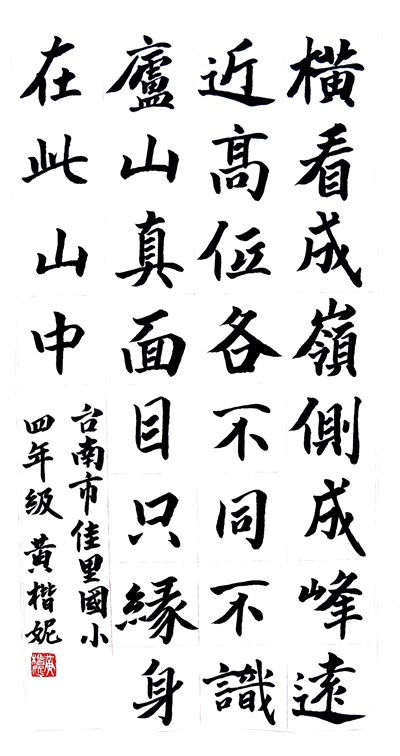 橫看成嶺側成峰遠
近高低各不同不識
廬山真面目只緣身
在此山中
台南市佳里國小
四年級 黃楷妮